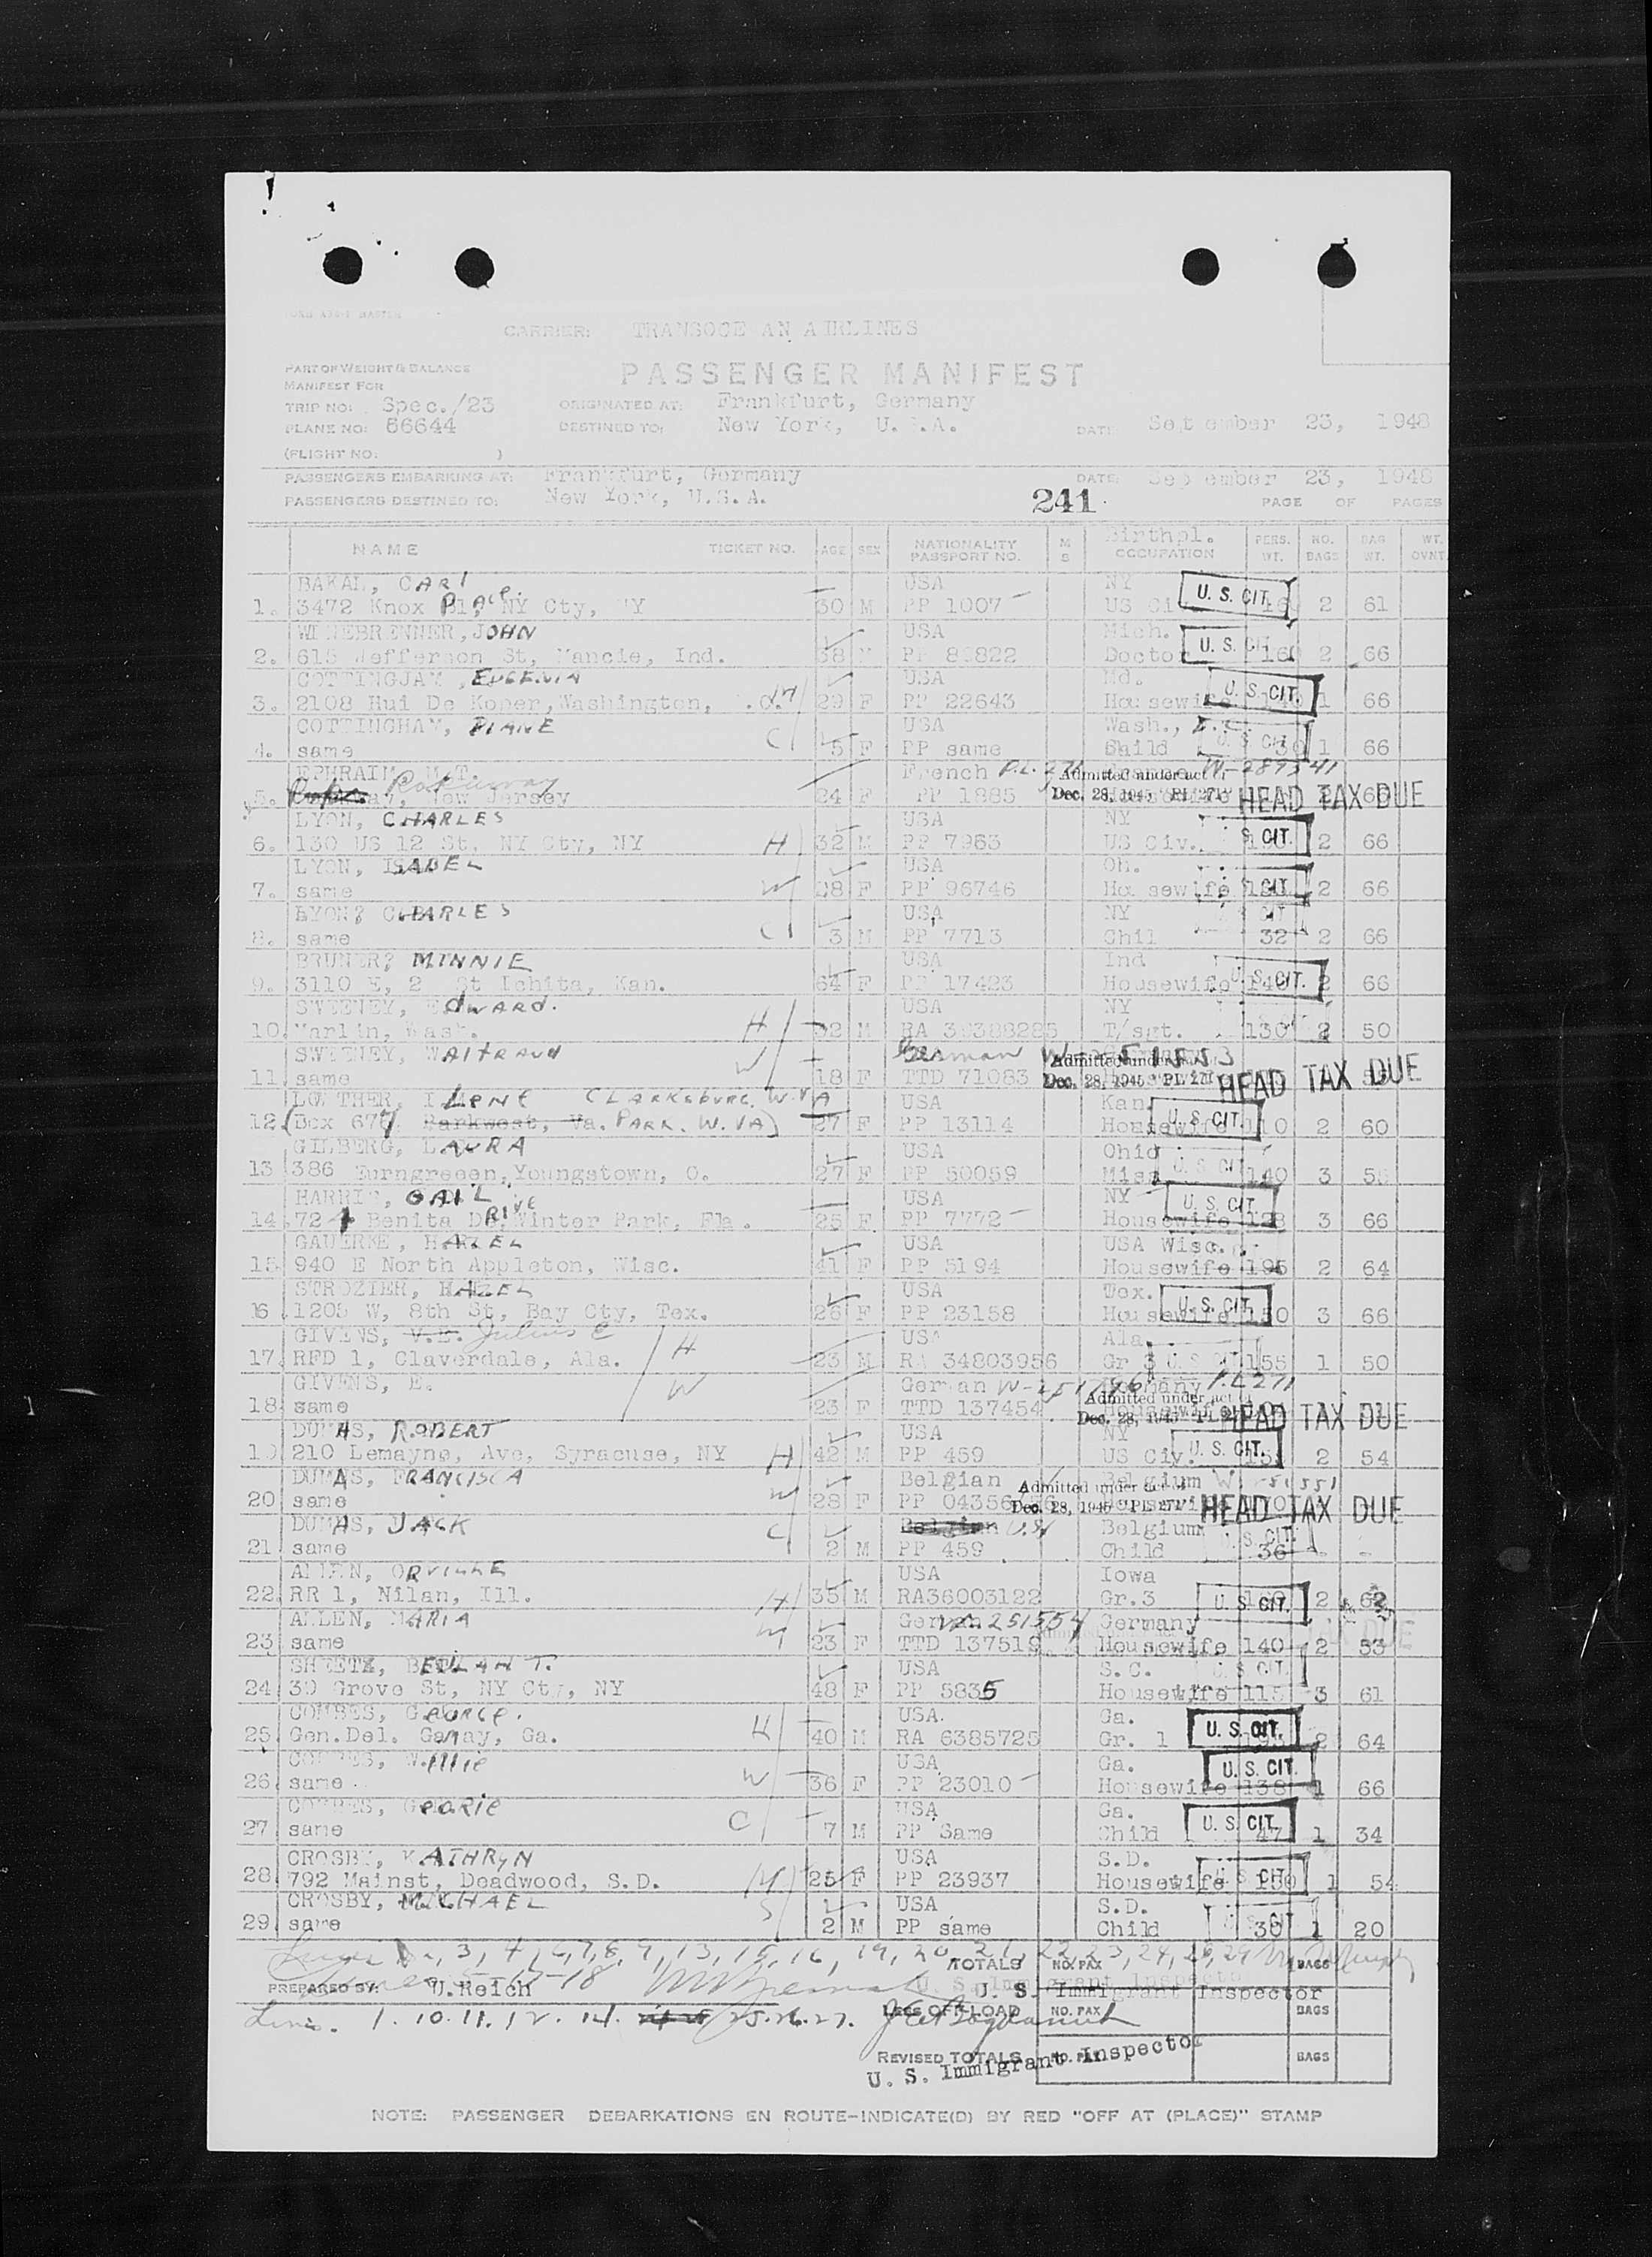 CARRIER: TRANSOCEAN AIRLINES
PART OF WEIGHT & BALANCE
MANIFEST FOR
PASSENGER MANIFEST
TRIP NO: Spec./23 ORIGINATED AT: Frankfurt, Germany
PLANE NO: 66644 DESTINED TO: New York, U.S.A. DATE: September 23, 1948
(FLIGHT NO: )
PASSENGERS EMBARKING AT: Frankfurt, Germany DATE: September 23, 1948
PASSENGERS DESTINED TO: New York, U.S.A. 241 PAGE OF PAGES
NAME TICKET NO. AGE SEX NATIONALITY PASSPORT NO. M S Birthpl. OCCUPATION PERS. WT. NO. BAGS BAG WT. WT. OVNT
BAKAL, CARl USA NY U. S. CIT.
1. 3472 Knox Place NY Cty, NY 30 M PP 1007 US Ci 2 61
WINEBRENNER, JOHN USA Mich. U. S. CIT.
2. 615 Jefferson St, Muncie, Ind. 38 M PP 83822 Doctor 160 2 66
COTTINGJAM, EUGENIA USA Md. U. S. CIT.
3. 2108 Hui De Koper, Washington, M 29 F PP 22643 Housewife 1 66
COTTINGHAM, DIANE USA Wash., D.C. U S CIT
4. same C 5 F PP same Child 30 1 66
EPHRAIM, M.T. Rockaway French P.L. 271 Admitted under act of W-289541
5. New Jersey 24 F PP 1885 Dec. 28, 1945 PL 271 HEAD TAX DUE
LYON, CHARLES USA NY
6. 130 US 12 St, NY Cty, NY H 32 M PP 7963 US Civ. S CIT. 2 66
LYON, ISABEL USA Oh.
7. same W 28 F PP 96746 Housewife CIT 2 66
LYON? CHARLES USA NY
8. same C 3 M PP 7713 Chil 32 2 66
BRUNER? MINNIE USA Ind
9. 3110 E, 2 St Ichita, Kan. 64 F PP 17423 Housewife 140 U. S. CIT. 2 66
SWEENEY, EdWARD. USA NY
10. Marlin, Wash. H 32 M RA 39388285 T/sgt. 130 2 50
SWEENEY, WAltRAUd German Admitted under
11. same W 18 F TTD 71083 Dec. 28, 1945 PL 271 HEAD TAX DUE
LOWTHER, ILENE CLARKSBURG, W.VA USA Kan. U. S. CIT.
12. (Box 677, Parkwest, Va. PARK. W. VA) 27 F PP 13114 Housewife 110 2 60
GILBERG, LAURA USA Ohio U. S. CIT
13 386 Eurngreeen, Youngstown, O. 27 F PP 50059 Miss 140 3 55
HARRIS, GAIL USA NY U. S. CIT
14. 724 Benita DRIVE Winter Park, Fla. 25 F PP 7772 Housewife 128 3 66
GAUERKE, HAZEL USA USA Wisc.
15 940 E North Appleton, Wisc. 41 F PP 5194 Housewife 195 2 64
STROZIER, HAZEL USA Tex. U. S. CIT.
16 1205 W, 8th St, Bay Cty, Tex. 26 F PP 23158 Housewife 150 3 66
GIVENS, V.E. Julius C H USA Ala.
17. RFD 1, Claverdale, Ala. 23 M RA 34803956 Gr 3 155 1 50
GIVENS, E. W German Germany P.L 271
18. same 23 F TTD 137454 Admitted under act of Dec. 28, 1945 HEAD TAX DUE
DUMAS, ROBERT USA NY
19 210 Lemayne, Ave, Syracuse, NY H 42 M PP 459 US Civ. U. S. CIT. 2 54
DUMAS, FRANCISCA Belgian Belgium
20 same W 28 F Admitted under act of Dec. 28, 1945 PL 271 HEAD TAX DUE
DUMAS, JACK Belgian U.S. Belgium
21 same C 2 M PP 459 Child 36 - -
ALLEN, ORVILLE USA Iowa
22 RR 1, Nilan, Ill. H 35 M RA36003122 Gr.3 U. S. CIT. 2 62
ALLEN, MARIA German 251554 Germany
23 same W 23 F TTD 137519 Housewife 140 2 53
SHEETZ, BEULAH T. USA S.C. U S CIT.
24 39 Grove St, NY Cty, NY 48 F PP 5835 Housewife 115 3 61
COMBES, GEORGE. USA. Ga.
25 Gen.Del. Ganay, Ga. H 40 M RA 6385725 Gr. 1 U. S. CIT. 2 64
COMBES, Willie USA Ga. U. S. CIT.
26 same W 36 F PP 23010 Housewife 138 1 66
COMBES, GEORIE USA Ga.
27 same C 7 M PP Same Child U. S. CIT. 47 1 34
CROSBY, KATHRyN USA S.D.
28 792 Mainst, Deadwood, S.D. M 25 F PP 23937 Housewife U S CIT 1 54
CROSBY, MICHAEL USA S.D.
29 same S 2 M PP same Child 30 1 20
TOTALS NO. PAX BAGS
PREPARED BY: U.Reich U. S. Immigrant Inspector
Lines. 1. 10. 11. 12. 14. 25. 26. 27. LESS OFFLOAD NO. PAX BAGS
REVISED TOTALS NO. PAX BAGS
U. S. Immigrant Inspector
NOTE: PASSENGER DEBARKATIONS EN ROUTE-INDICATE(D) BY RED "OFF AT (PLACE)" STAMP